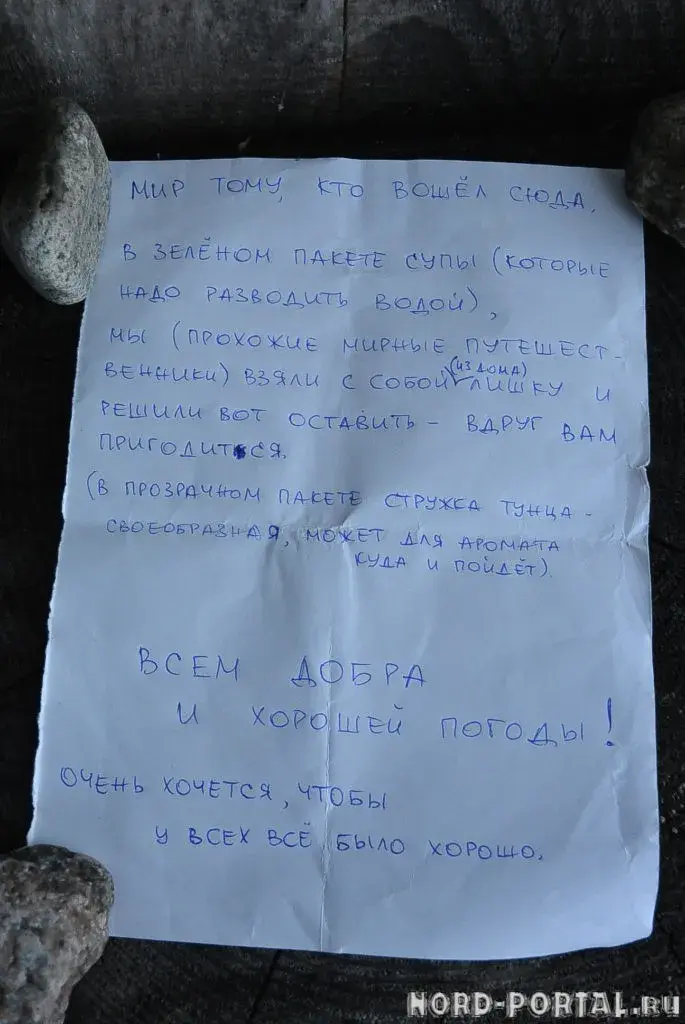 МИР ТОМУ, КТО ВОШЁЛ СЮДА.
В ЗЕЛЁНОМ ПАКЕТЕ СУПЫ (КОТОРЫЕ
НАДО РАЗВОДИТЬ ВОДОЙ),
МЫ (ПРОХОЖИЕ МИРНЫЕ ПУТЕШЕСТ-
ВЕННИКИ) ВЗЯЛИ С СОБОЙ (ИЗ ДОМА) ЛИШКУ И
РЕШИЛИ ВОТ ОСТАВИТЬ - ВДРУГ ВАМ
ПРИГОДИТСЯ.
(В ПРОЗРАЧНОМ ПАКЕТЕ СТРУЖКА ТУНЦА -
СВОЕОБРАЗНАЯ, МОЖЕТ ДЛЯ АРОМАТА
КУДА И ПОЙДЁТ).
ВСЕМ ДОБРА
И ХОРОШЕЙ ПОГОДЫ!
ОЧЕНЬ ХОЧЕТСЯ, ЧТОБЫ
У ВСЕХ ВСЁ БЫЛО ХОРОШО.
NORD-PORTAL.RU